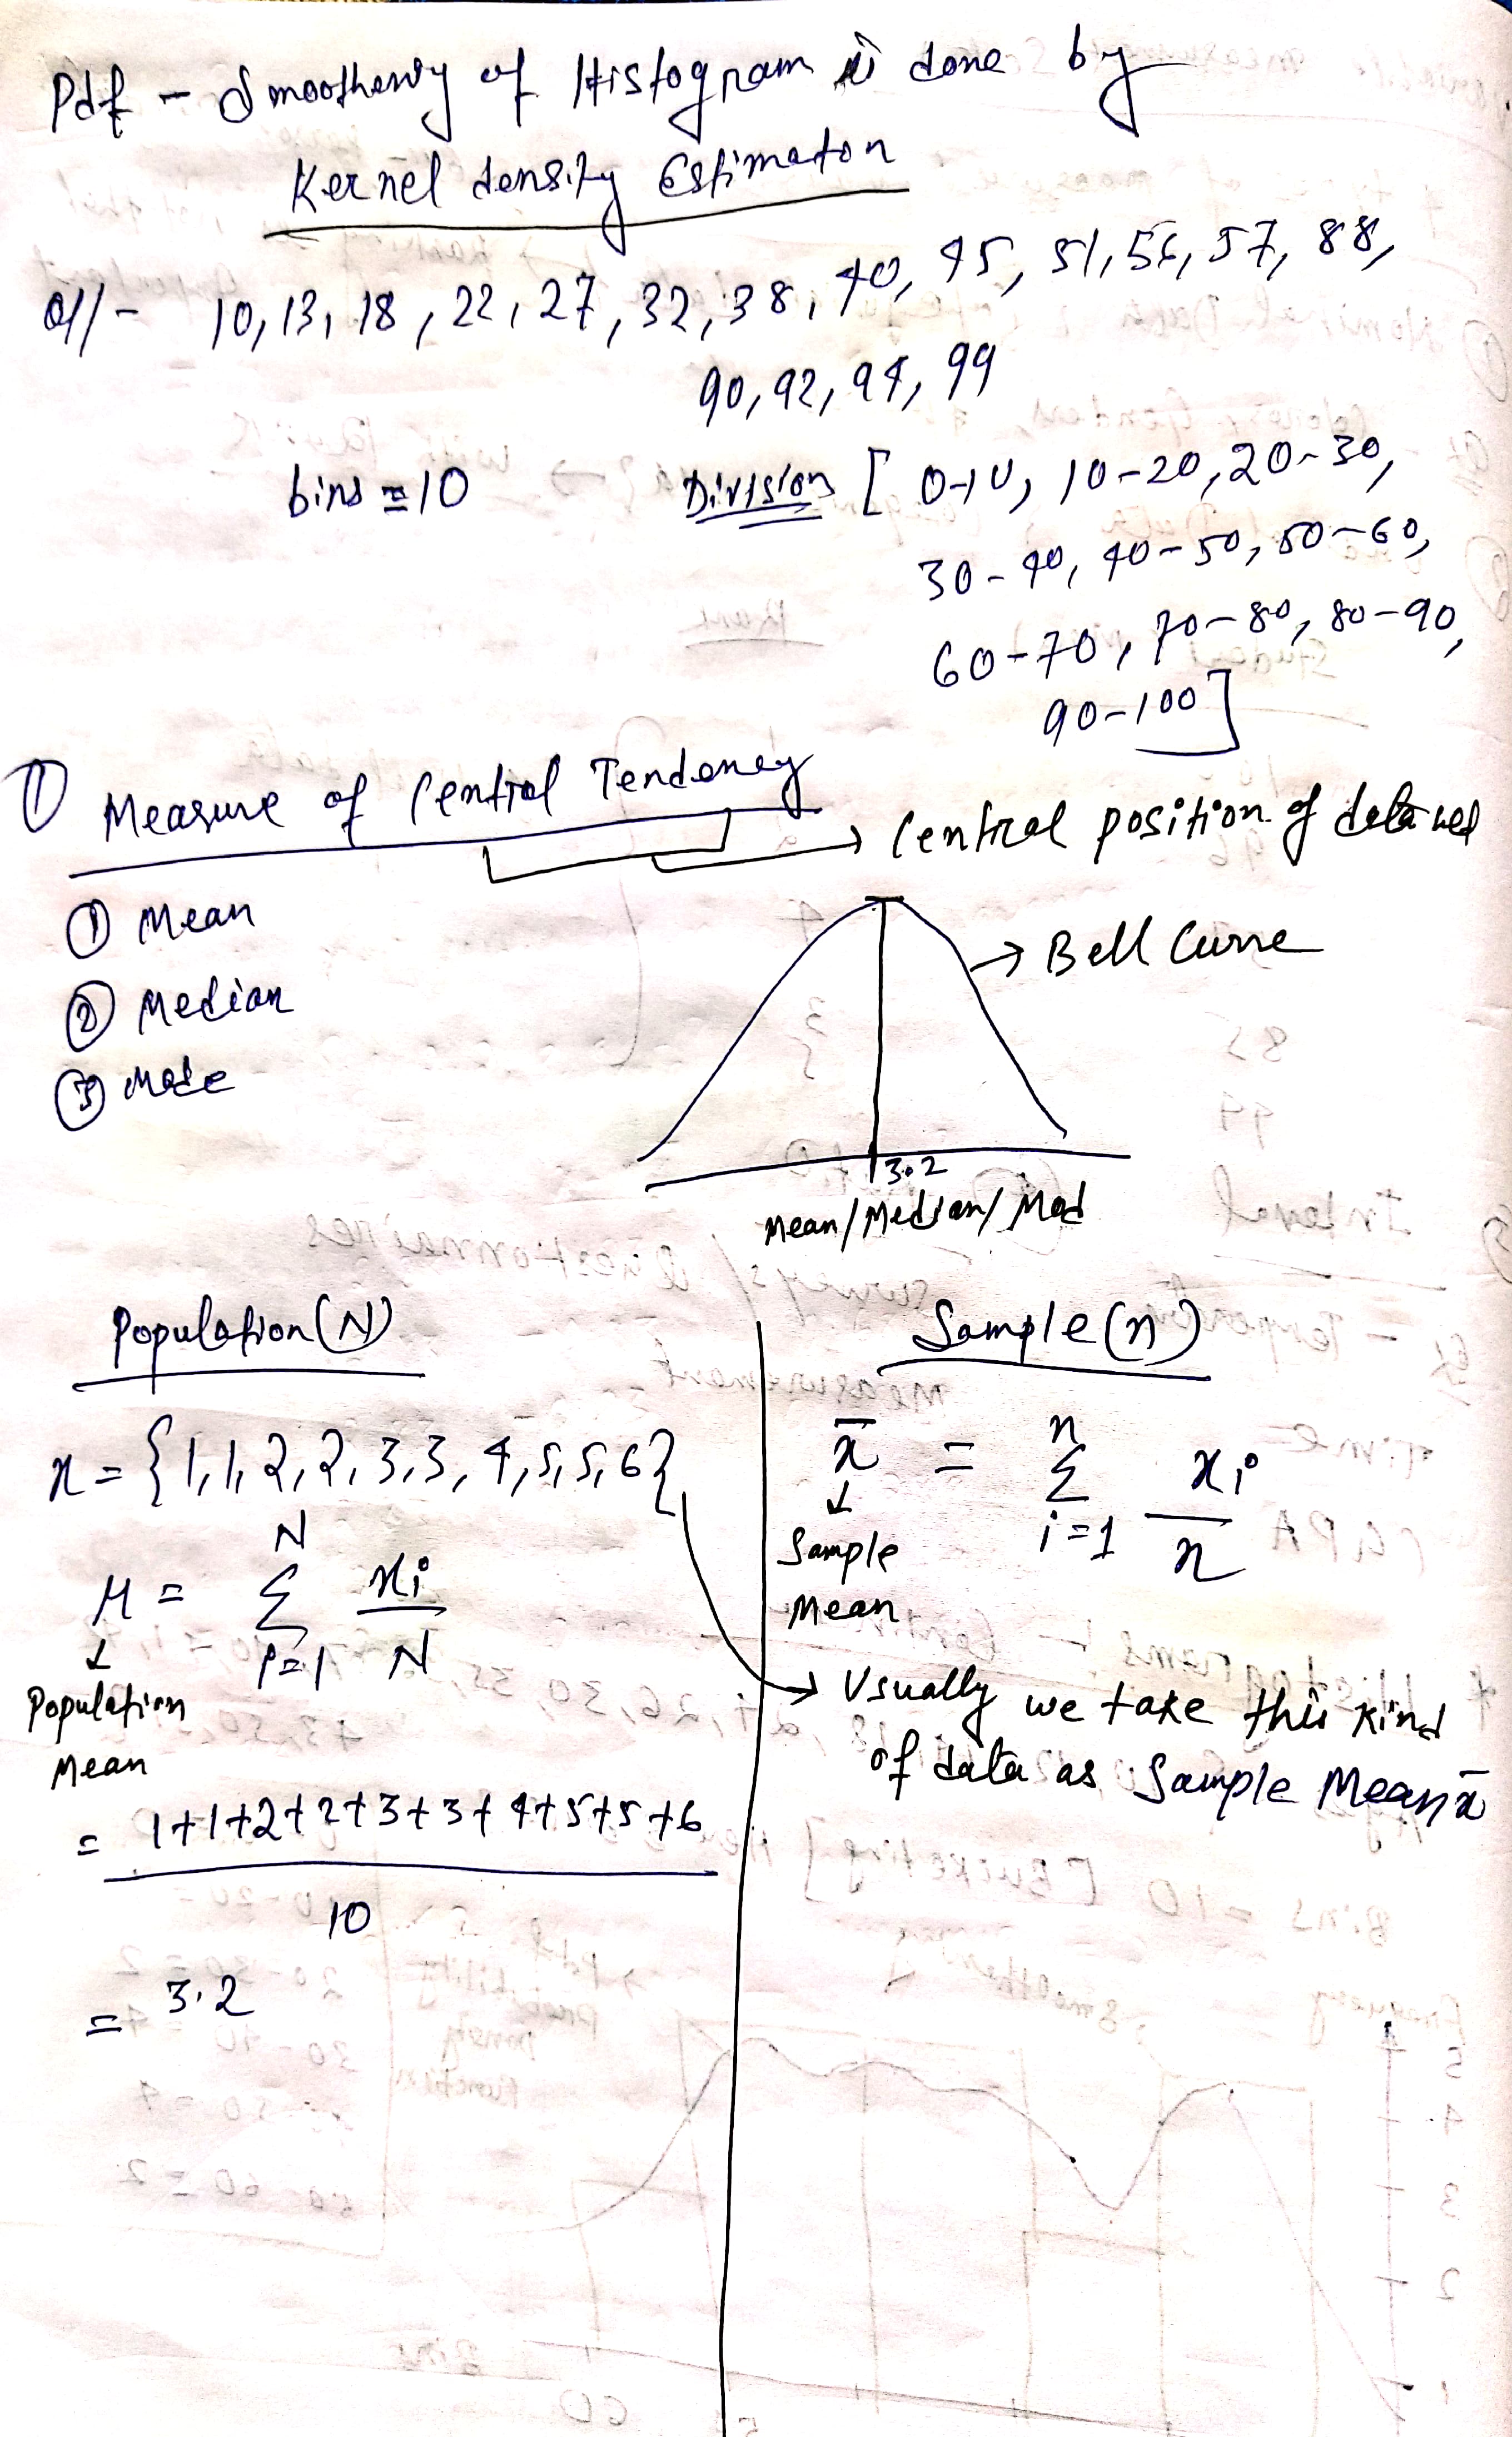 Pdf - Smoothening of Histogram is done by
Kernel density Estimaton
Q// - 10, 13, 18, 22, 27, 32, 38, 40, 45, 51, 56, 57, 88,
90, 92, 94, 99
bins = 10 Division [ 0-10, 10-20, 20-30,
30-40, 40-50, 50-60,
60-70, 70-80, 80-90,
90-100]
① Measure of Central Tendency
→ Central position of data
① Mean
② Median
③ Mode
→ Bell Curve
3.2
Mean/Median/Mod
Population (N)
x = {1,1,2,2,3,3,4,5,5,6}
N
μ = Σ xi
i=1 N
↓
Population
Mean
= 1+1+2+2+3+3+4+5+5+6
10
= 3.2
Sample (n)
n
x̄ = Σ xi
i=1 n
↓
Sample
Mean
→ Usually we take this kind
of data as Sample Mean x̄